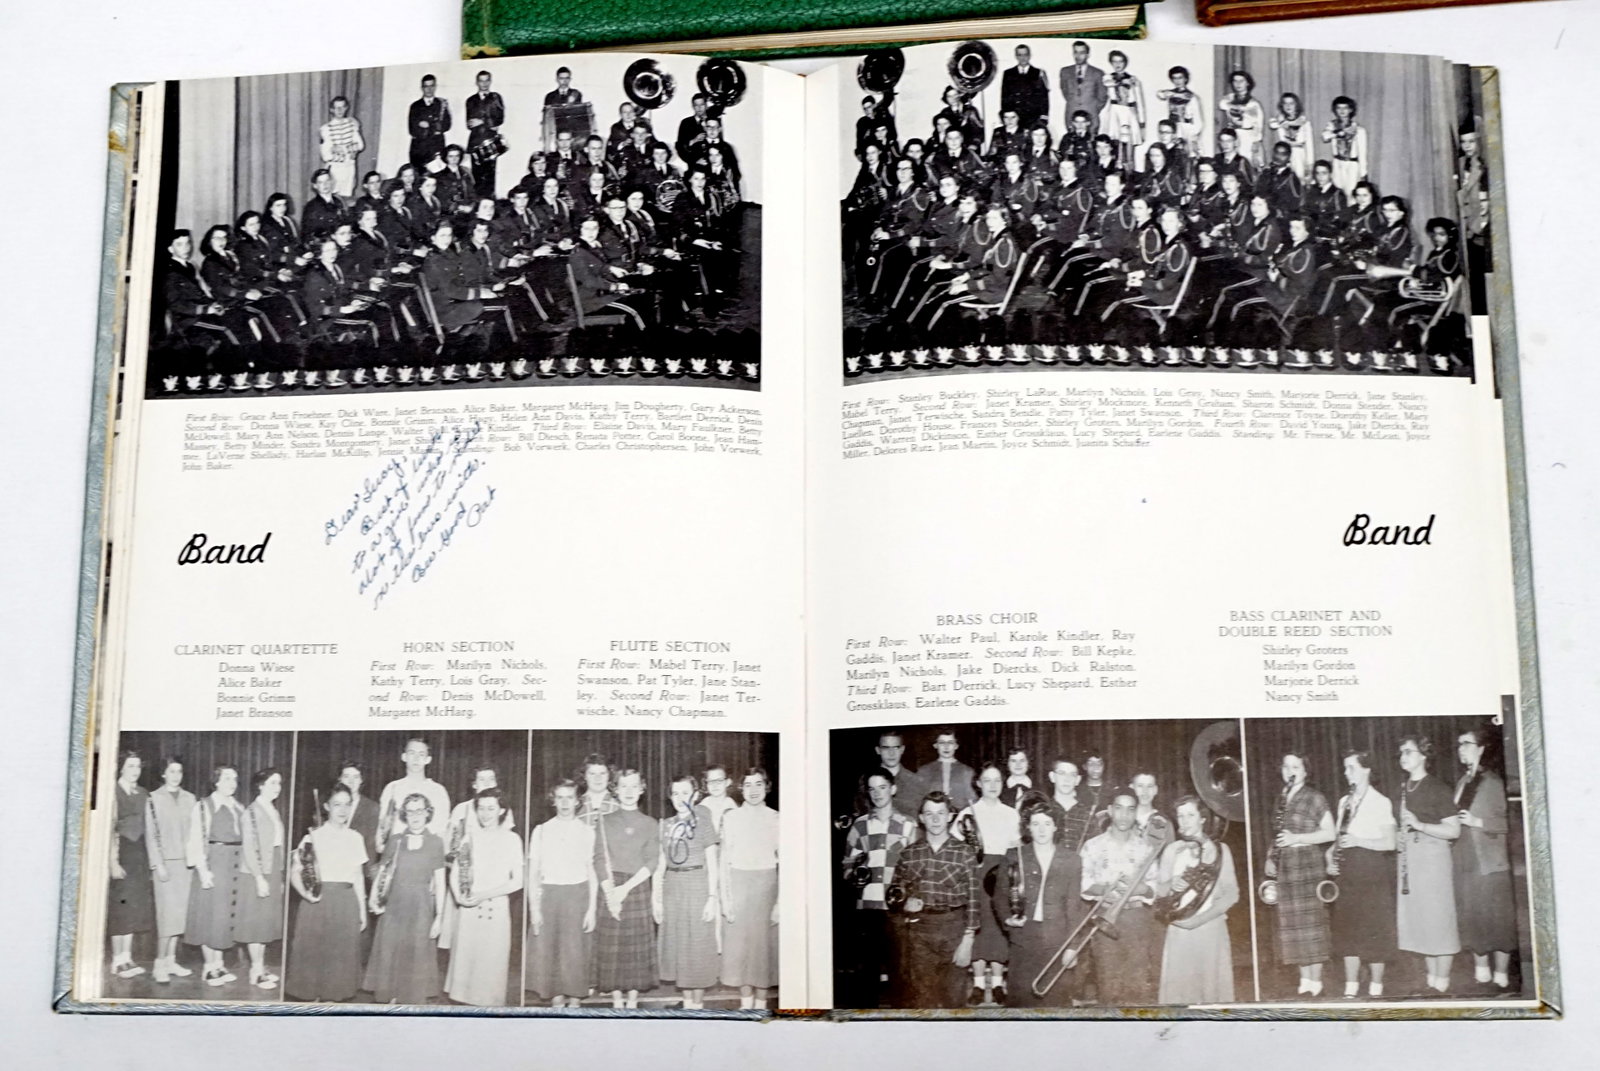 First Row: Grace Ann Froehner, Dick Ware, Janet Branson, Alice Baker, Margaret McHarg, Jim Dougherty, Gary Ackerson,
Second Row: Donna Wiese, Kay Cline, Bonnie Grimm, Alice Harry, Helen Ann Davis, Kathy Terry, Bartlett Derrick, Denis
McDowell, Mary Ann Nelson, Dennis Lange, Walter Paul, Karole Kindler. Third Row: Elaine Davis, Mary Faulkner, Betty
Massey, Betty Munder, Sandra Montgomery, Janet Row: Bill Diesch, Renata Potter, Carol Boone, Jean Ham-
mer, LaVerne Shellady, Harlan McKillip, Jennie Standing: Bob Vorwerk, Charles Christophersen, John Vorwerk,
John Baker.
Dear Lucy,
Best of luck
to a
lot of fun
in the bus with.
Be Good
Pat
Band
CLARINET QUARTETTE
Donna Wiese
Alice Baker
Bonnie Grimm
Janet Branson
HORN SECTION
First Row: Marilyn Nichols,
Kathy Terry, Lois Gray. Sec-
ond Row: Denis McDowell,
Margaret McHarg.
FLUTE SECTION
First Row: Mabel Terry, Janet
Swanson, Pat Tyler, Jane Stan-
ley. Second Row: Janet Ter-
wische, Nancy Chapman.
Pat
First Row: Stanley Buckley, Shirley LaRue, Marilyn Nichols, Lois Gray, Nancy Smith, Marjorie Derrick, Jane Stanley,
Mabel Terry. Second Row: Janet Kramer, Shirley Mockmore, Kenneth Graham, Sharon Schmidt, Donna Stender, Nancy
Chapman, Janet Terwische, Sandra Bendle, Patty Tyler, Janet Swanson. Third Row: Clarence Toyne, Dorothy Keller, Mary
Luellen, Dorothy House, Frances Stender, Shirley Groters, Marilyn Gordon. Fourth Row: David Young, Jake Diercks, Ray
Gaddis, Warren Dickinson, Esther Grossklaus, Lucy Shepard, Earlene Gaddis. Standing: Mr. Freese, Mr. McLean, Joyce
Miller, Delores Rutz, Jean Martin, Joyce Schmidt, Juanita Schaffer.
Band
BRASS CHOIR
First Row: Walter Paul, Karole Kindler, Ray
Gaddis, Janet Kramer. Second Row: Bill Kepke,
Marilyn Nichols, Jake Diercks, Dick Ralston.
Third Row: Bart Derrick, Lucy Shepard, Esther
Grossklaus, Earlene Gaddis.
BASS CLARINET AND
DOUBLE REED SECTION
Shirley Groters
Marilyn Gordon
Marjorie Derrick
Nancy Smith